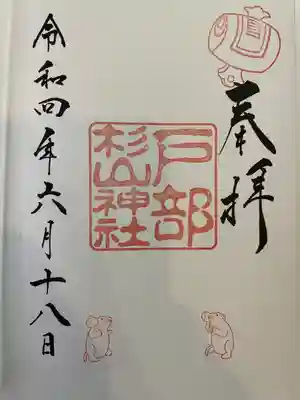 奉拝
戸部
杉山神社
令和四年六月十八日